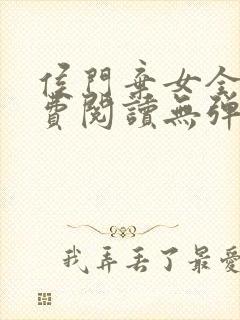 侯門棄女全
費閱讀無彈
我弄丟了最愛